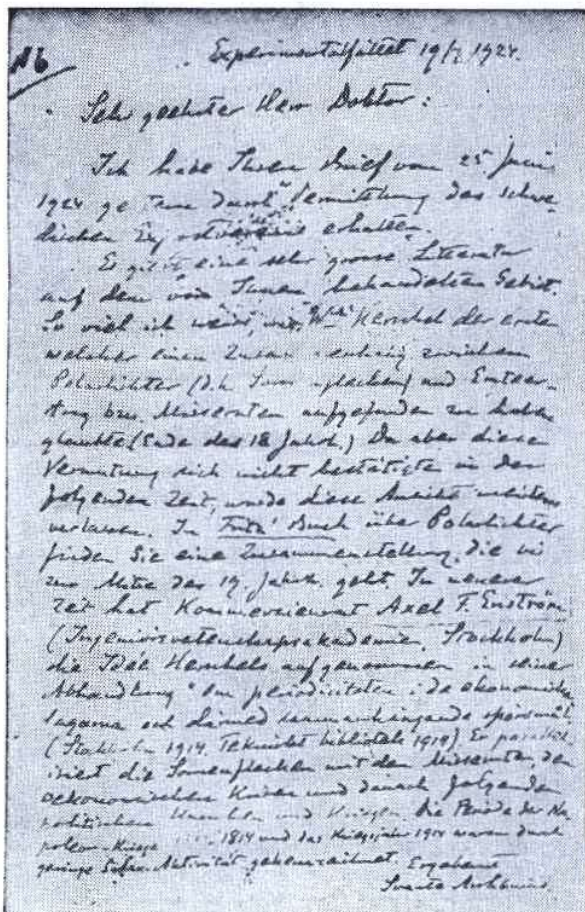 N6
Experimentalfältet 19/7 1924.
Sehr geehrter Herr Doktor:
Ich habe Ihren Brief vom 25 Juni
1924 durch Vermittelung des schwe-
dischen erhalten.
Es gibt eine sehr grosse Literatur
auf dem von Ihnen behandelten Gebiet.
So viel ich weiss, war Wm Herschel der erste
welcher einen zwischen
Polarlichter (d.h. und Ernteer-
trag bzw. Missernten aufgefunden zu haben
glaubte (Ende des 18 Jahrh.) Da aber diese
Vermutung sich nicht bestätigte in der
folgenden Zeit, wurde diese Ansicht
verlassen. In Fritz' Buch über Polarlichter
finden Sie eine Zusammenstellung, die bis
zur Mitte des 19. Jahrh. geht. In neuerer
Zeit hat Kommerzienrat Axel F. Enström
(Ingeniörsvetenskapsakademien, Stockholm)
die Idee Herschels aufgenommen in seiner
Abhandlung "Om periodiciteten i de ekonomiska
lagarna och därmed sammanhängande spörsmål
(Stockholm 1914, Tekniska bibliotek 1914) Er
die Sonnenflecken mit den Missernten, den
oekonomischen Krisen und danach folgenden
politischen und Kriegen. Die Periode der Na-
poleon-Kriege 1814 und das Kriegsjahr 1914 waren durch
geringe Aktivität gekennzeichnet. Ergebenst
Svante Arrhenius.